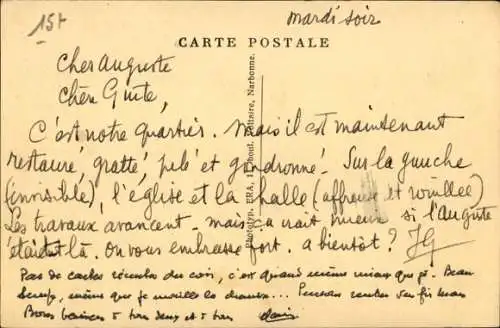 15f
mardi soir
CARTE POSTALE
Cher Auguste
Chère Guite,
C'est notre quartier. Mais il est maintenant
restauré, gratté, pelé et goudronné. Sur la gauche
(invisible), l'église et la halle (affreuse et rouillée)
Les travaux avancent. mais ça irait mieux si l'Auguste
était là. On vous embrasse fort. a bientôt? JG
Pas de cartes récentes du coin, c'est quand même mieux que ça. Beau
temps, même que je mouille la chemise... Pensons rentrer
Bons baisers à tous deux et à tous
Phototyp. ERA, 11, boul. Narbonne.